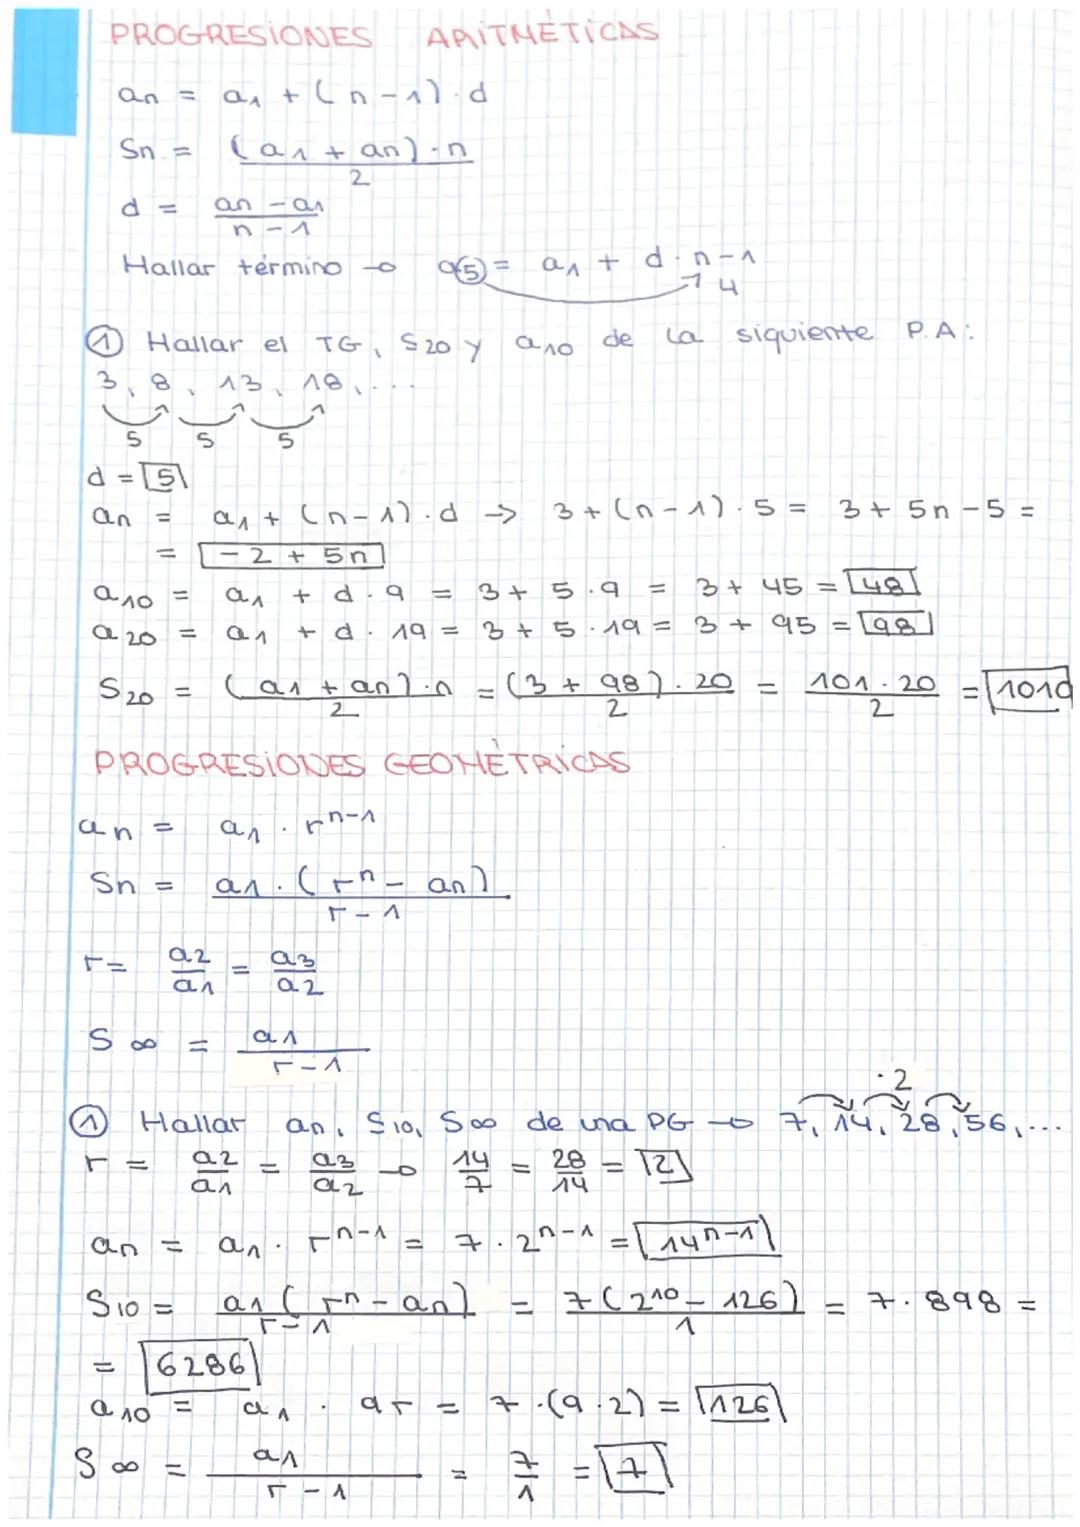 PROGRESIONES ARITMÉTICAS
an = a1 + (n-1)·d
Sn = (a1 + an)·n / 2
d = an - a1 / n - 1
Hallar término → a5 = a1 + d·n-1
4
① Hallar el TG, S20 y a10 de la siquiente P.A:
3, 8, 13, 18, ...
5 5 5
d = 5
an = a1 + (n-1)·d → 3 + (n-1)·5 = 3 + 5n - 5 =
= -2 + 5n
a10 = a1 + d·9 = 3 + 5·9 = 3 + 45 = 48
a20 = a1 + d·19 = 3 + 5·19 = 3 + 95 = 98
S20 = (a1 + an)·n / 2 = (3 + 98)·20 / 2 = 101·20 / 2 = 1010
PROGRESIONES GEOMÉTRICAS
an = a1 · r^n-1
Sn = a1·(r^n - an) / r - 1
r = a2 / a1 = a3 / a2
S∞ = a1 / r - 1
·2
① Hallar an, S10, S∞ de una PG → 7, 14, 28, 56, ...
r = a2 / a1 = a3 / a2 → 14 / 7 = 28 / 14 = 2
an = a1 · r^n-1 = 7·2^n-1 = 14^n-1
S10 = a1(r^n - an) / r - 1 = 7(2^10 - 126) / 1 = 7·898 =
= 6286
a10 = a1 · 9r = 7·(9·2) = 126
S∞ = a1 / r - 1 = 7 / 1 = 7